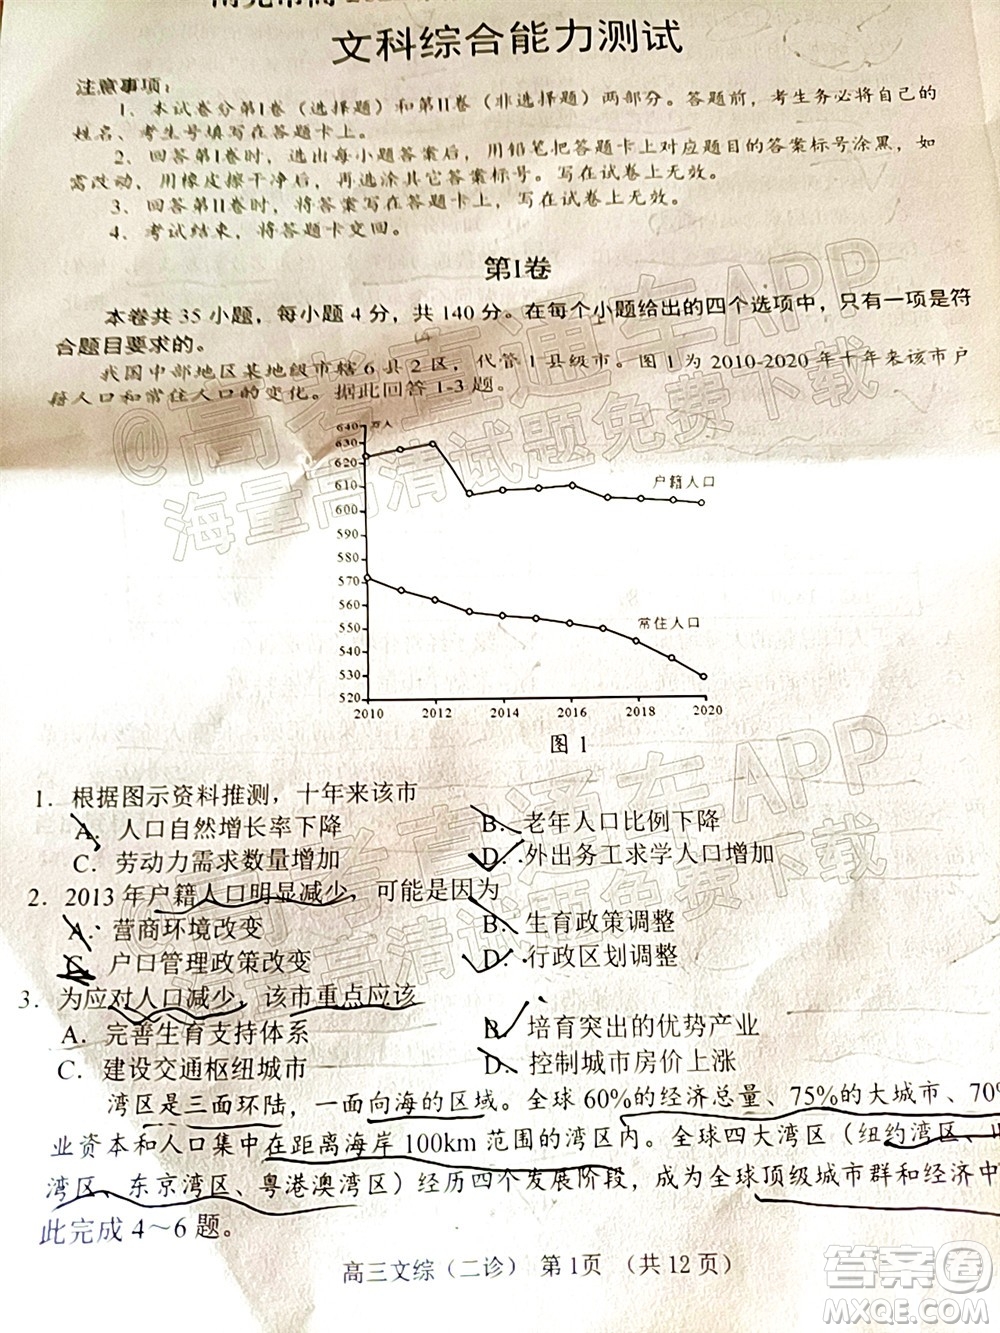 文科综合能力测试
注意事项：
1．本试卷分第I卷（选择题）和第II卷（非选择题）两部分。答题前，考生务必将自己的
姓名、考生号填写在答题卡上。
2．回答第I卷时，选出每小题答案后，用铅笔把答题卡上对应题目的答案标号涂黑，如
需改动，用橡皮擦干净后，再选涂其它答案标号。写在试卷上无效。
3．回答第II卷时，将答案写在答题卡上，写在试卷上无效。
4．考试结束，将答题卡交回。
第I卷
本卷共 35 小题，每小题 4 分，共 140 分。在每个小题给出的四个选项中，只有一项是符
合题目要求的。
我国中部地区某地级市辖 6 县 2 区，代管 1 县级市。图 1 为 2010-2020 年十年来该市户
籍人口和常住人口的变化。据此回答 1-3 题。
640 万人
630
620
610
600
590
580
570
560
550
540
530
520
户籍人口
常住人口
2010 2012 2014 2016 2018 2020
图 1
1．根据图示资料推测，十年来该市
A．人口自然增长率下降 B．老年人口比例下降
C．劳动力需求数量增加 D．外出务工求学人口增加
2．2013 年户籍人口明显减少，可能是因为
A．营商环境改变 B．生育政策调整
C．户口管理政策改变 D．行政区划调整
3．为应对人口减少，该市重点应该
A．完善生育支持体系 B．培育突出的优势产业
C．建设交通枢纽城市 D．控制城市房价上涨
湾区是三面环陆，一面向海的区域。全球 60%的经济总量、75%的大城市、70%
业资本和人口集中在距离海岸 100km 范围的湾区内。全球四大湾区（纽约湾区、
湾区、东京湾区、粤港澳湾区）经历四个发展阶段，成为全球顶级城市群和经济中
此完成 4～6 题。
高三文综（二诊） 第 1 页 （共 12 页）
@高考直通车APP
海量高清试题免费下载
高考直通车APP
海量高清试题免费下载
答案圈
MXQE.COM